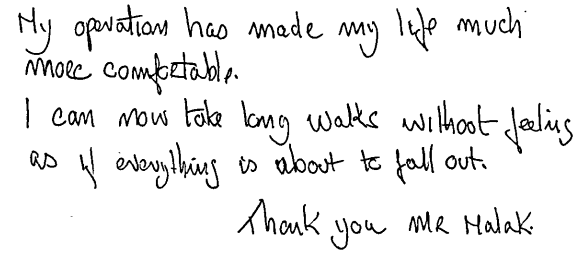 My operation has made my life much
more comfortable.
I can now take long walks without feeling
as if everything is about to fall out.
Thank you Mr Malak.